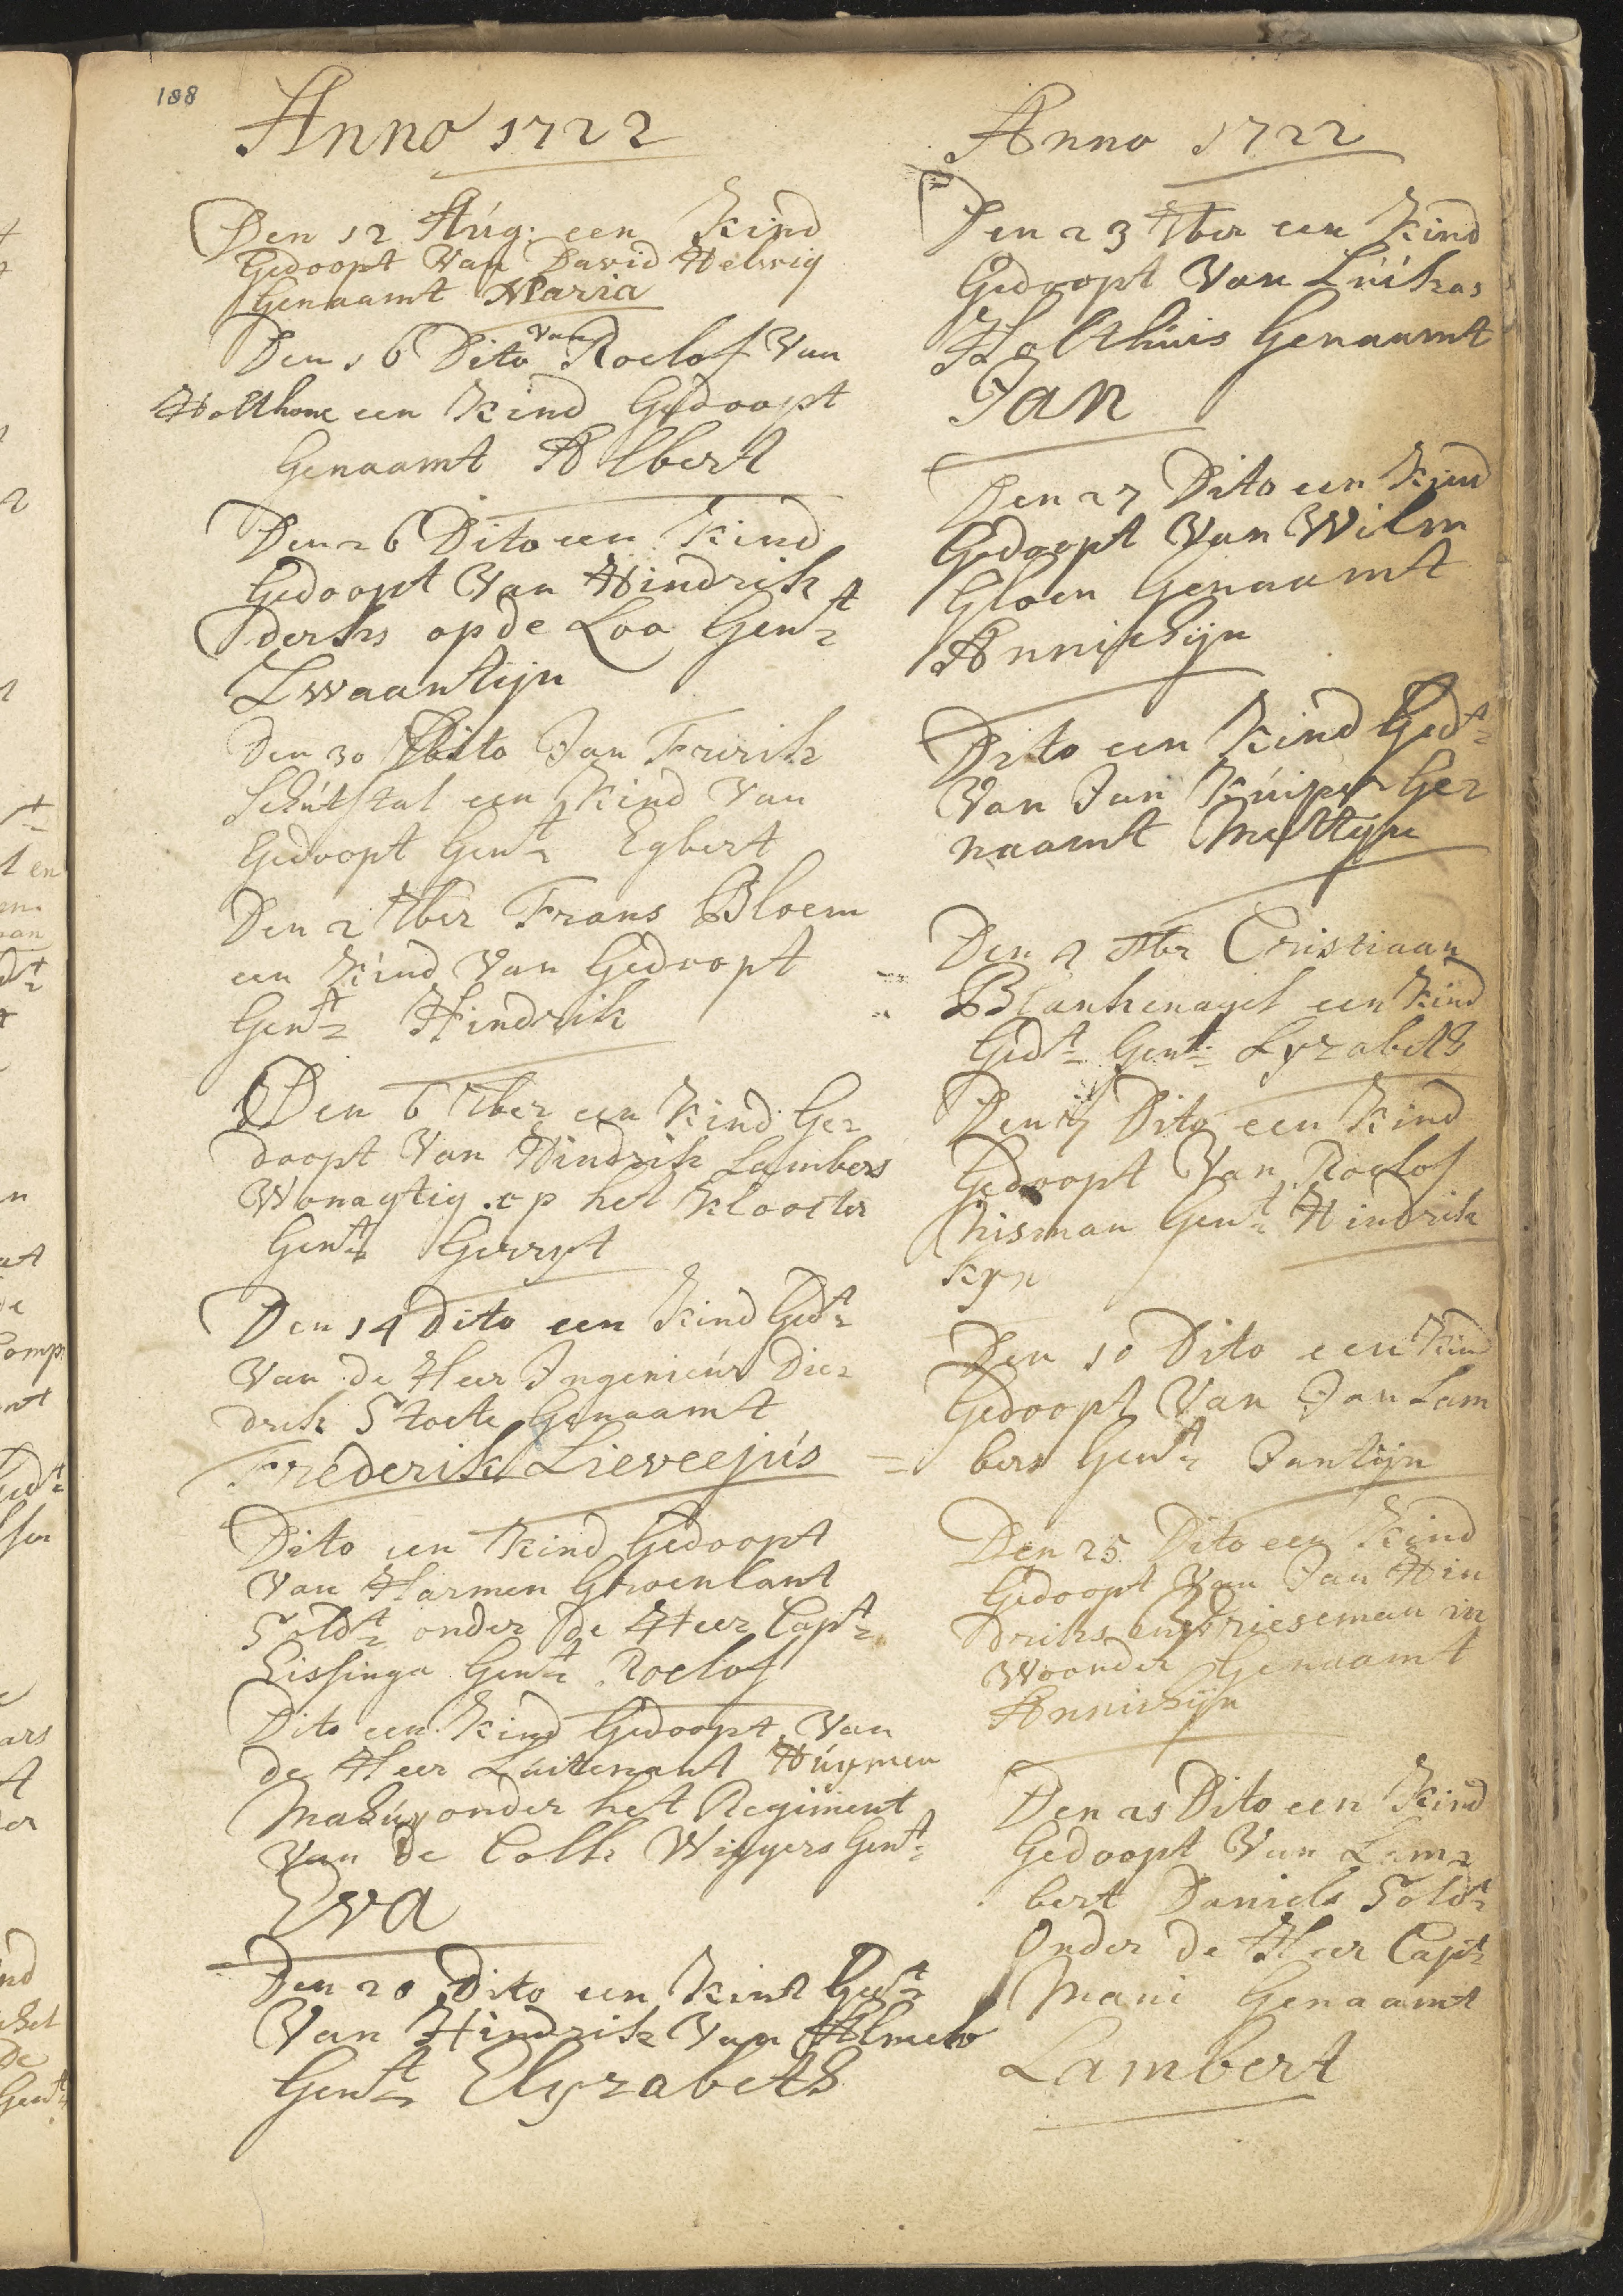 188
Anno 1722
Den 12 Aúg: een Kind
Gedoopt Van David Helwig
Genaamt Maria
Den 16 Dito Van Roelof Van
Holthone een Kind Gedoopt
Genaamt Albert
Den 26 Dito een Kind
Gedoopt Van Hindrik
derks op de Loo Gent
Swaantijn
Den 30 Dito Jan Frerik
Schútstal een Kind Van
Gedoopt Gent Egbert
Den 2 7ber Frans Bloem
een Kind Van Gedoopt
Gent Hindrik
Den 6 7ber een Kind Ge=
doopt Van Hindrik Lambers
Wonagtig op het Klooster
Gent Gerryt
Den 14 Dito een Kind Gedt
Van de Heer Ingenieúr Die=
drik Stoete Genaamt
Frederik Lieveejús
Dito een Kind Gedoopt
Van Harmen Groenlant
Soldt onder de Heer Capt
Eissinga Gent Roelof
Dito een Kind Gedoopt Van
de Heer Luitenant Húymen
Mahúy onder het Regiment
Van de Coll: Wiggers Gent
Eva
Den 20 Dito een Kint Gedt
Van Hindrik Van Almelo
Gent Elyzabeth
Anno 1722
Den 23 7ber een Kind
Gedoopt Van Lúikas
Holthúis Genaamt
Jan
Den 27 Dito een Kind
Gedoopt Van Wilm
Gloen Genaamt
Annichijn
Dito een Kind Gedt
Van Jan Kúiper Ge=
naamt Mettyn
Den 2 8ber Cristiaan
Blankenagel een Kind
Gedt Gent Lyzabeth
Den 7 Dito een Kind
Gedoopt Van Roelof
hisman Gent Hindrik
kyn
Den 10 Dito een Kind
Gedoopt Van Jan Lam
bers Gent Jantijn
Den 25 Dito een Kind
Gedoopt Van Jan Hin
driks Vrieseman in
Woonder Genaamt
Annichijn
Den 25 Dito een Kind
Gedoopt Van Lam=
bert Daniels Soldt
Onder de Heer Capt
Mani Genaamt
Lambert